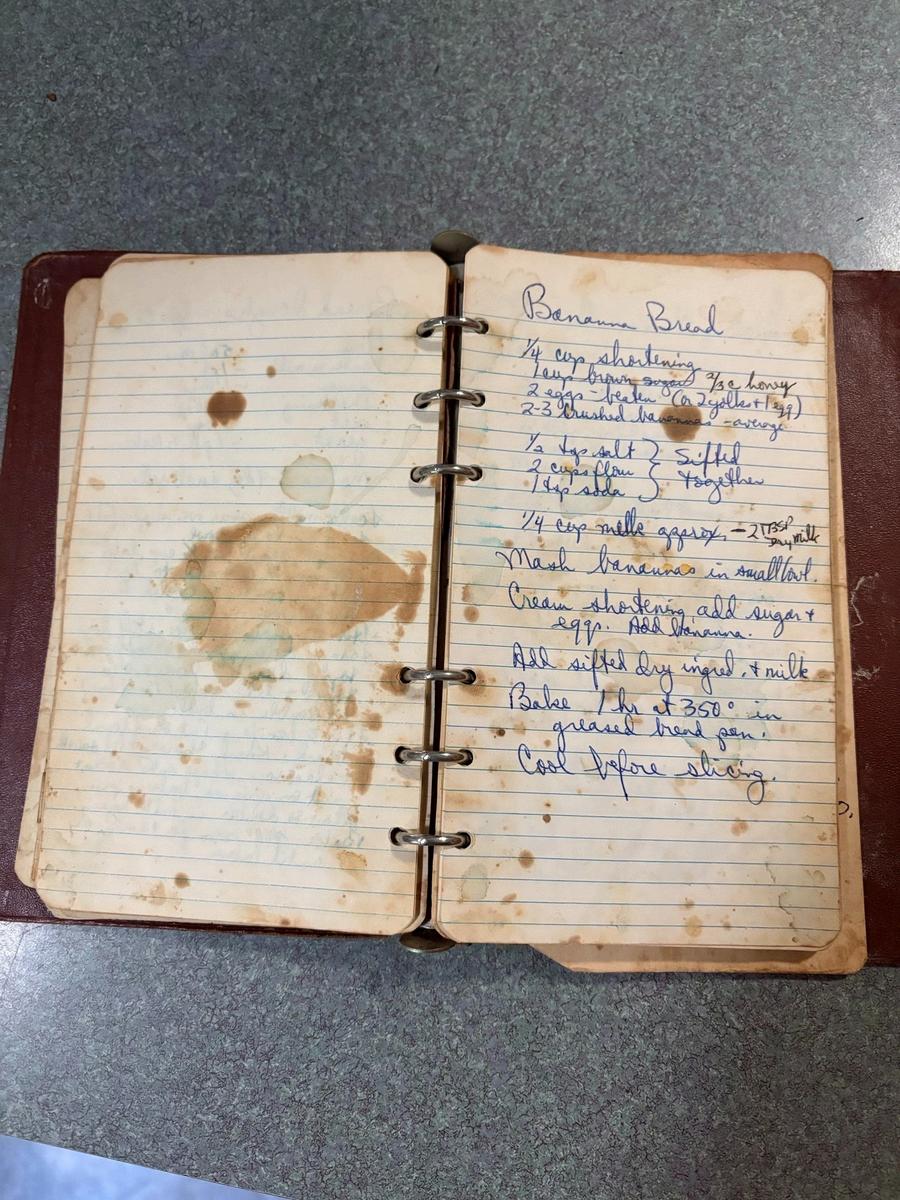 Bananna Bread
1/4 cup shortening
1 cup brown sugar 2/3 c honey
2 eggs - beaten (or 2 yolks + 1 egg)
2-3 crushed banannas - average
1/2 tsp salt } Sifted
2 cups flour } together
1 tsp soda }
1/4 cup milk approx. - 2 TBSP
Dry Milk
Mash banannas in small bowl.
Cream shortening add sugar +
eggs. Add bananna.
Add sifted dry ingred. + milk
Bake 1 hr at 350° in
greased bread pan.
Cool before slicing.